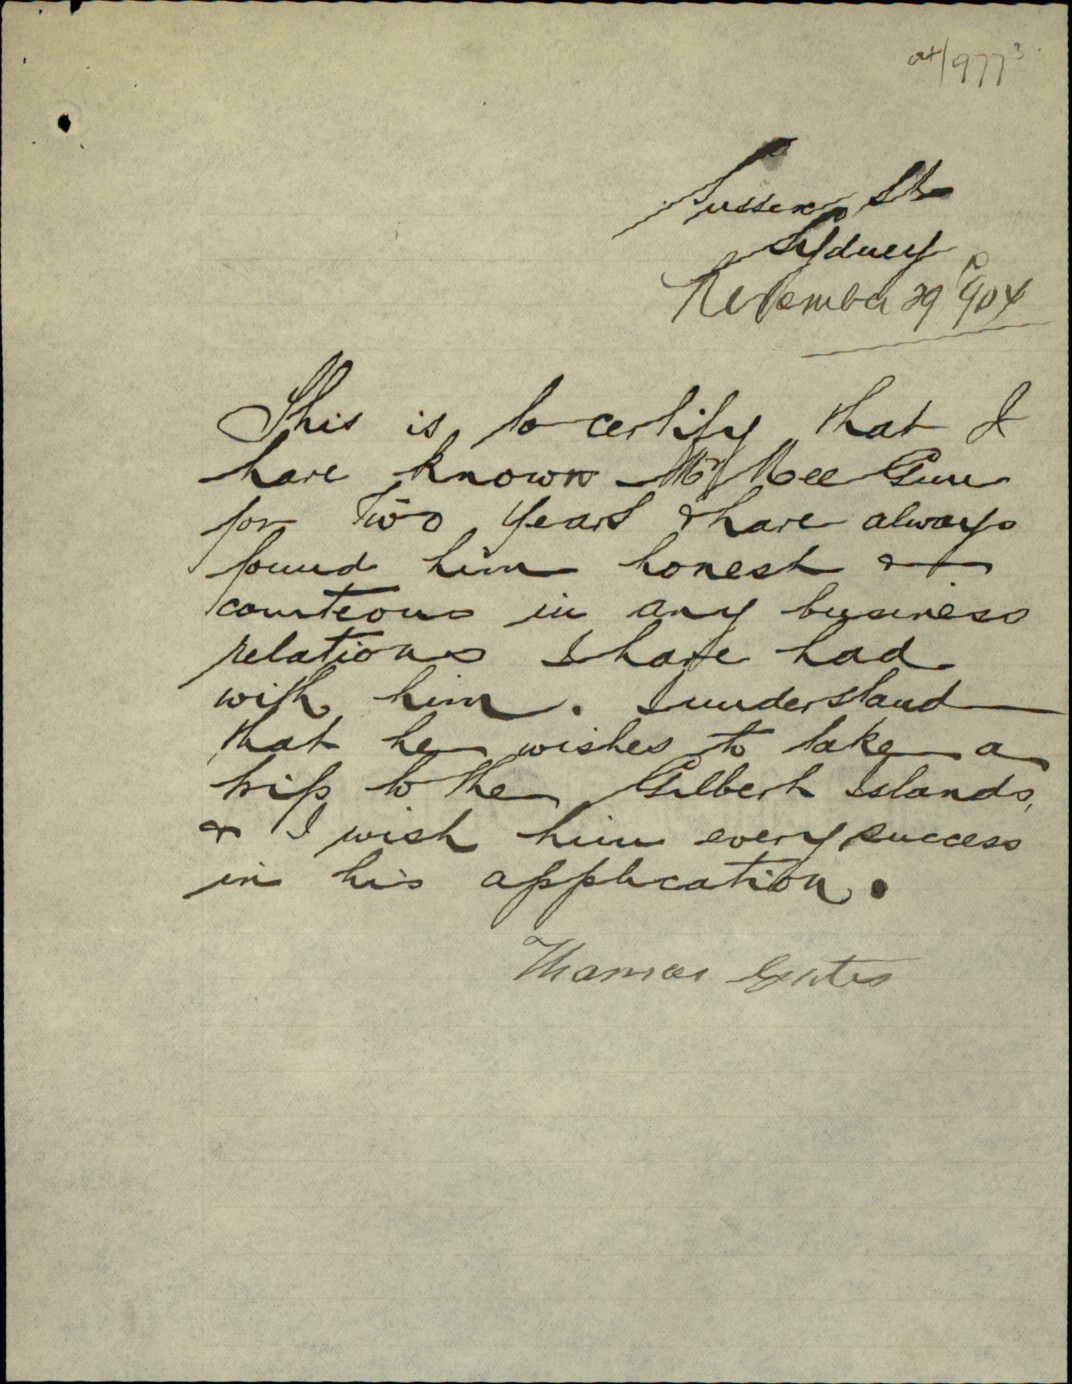 04/9773
Sussex St
Sydney
November 29 1904
This is to certify that I
have known Mr Kee Guu
for two years & have always
found him honest &
courteous in any business
relations I have had
with him. I understand
that he wishes to take a
trip to the Gilbert Islands,
& I wish him every success
in his application.
Thomas